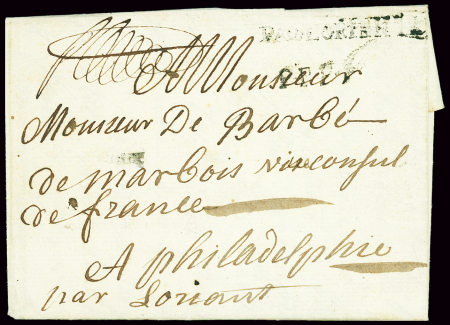 A Monsieur
Monsieur De Barbé
de marbois viceconsul
de france
A philadelphie
par Loriant